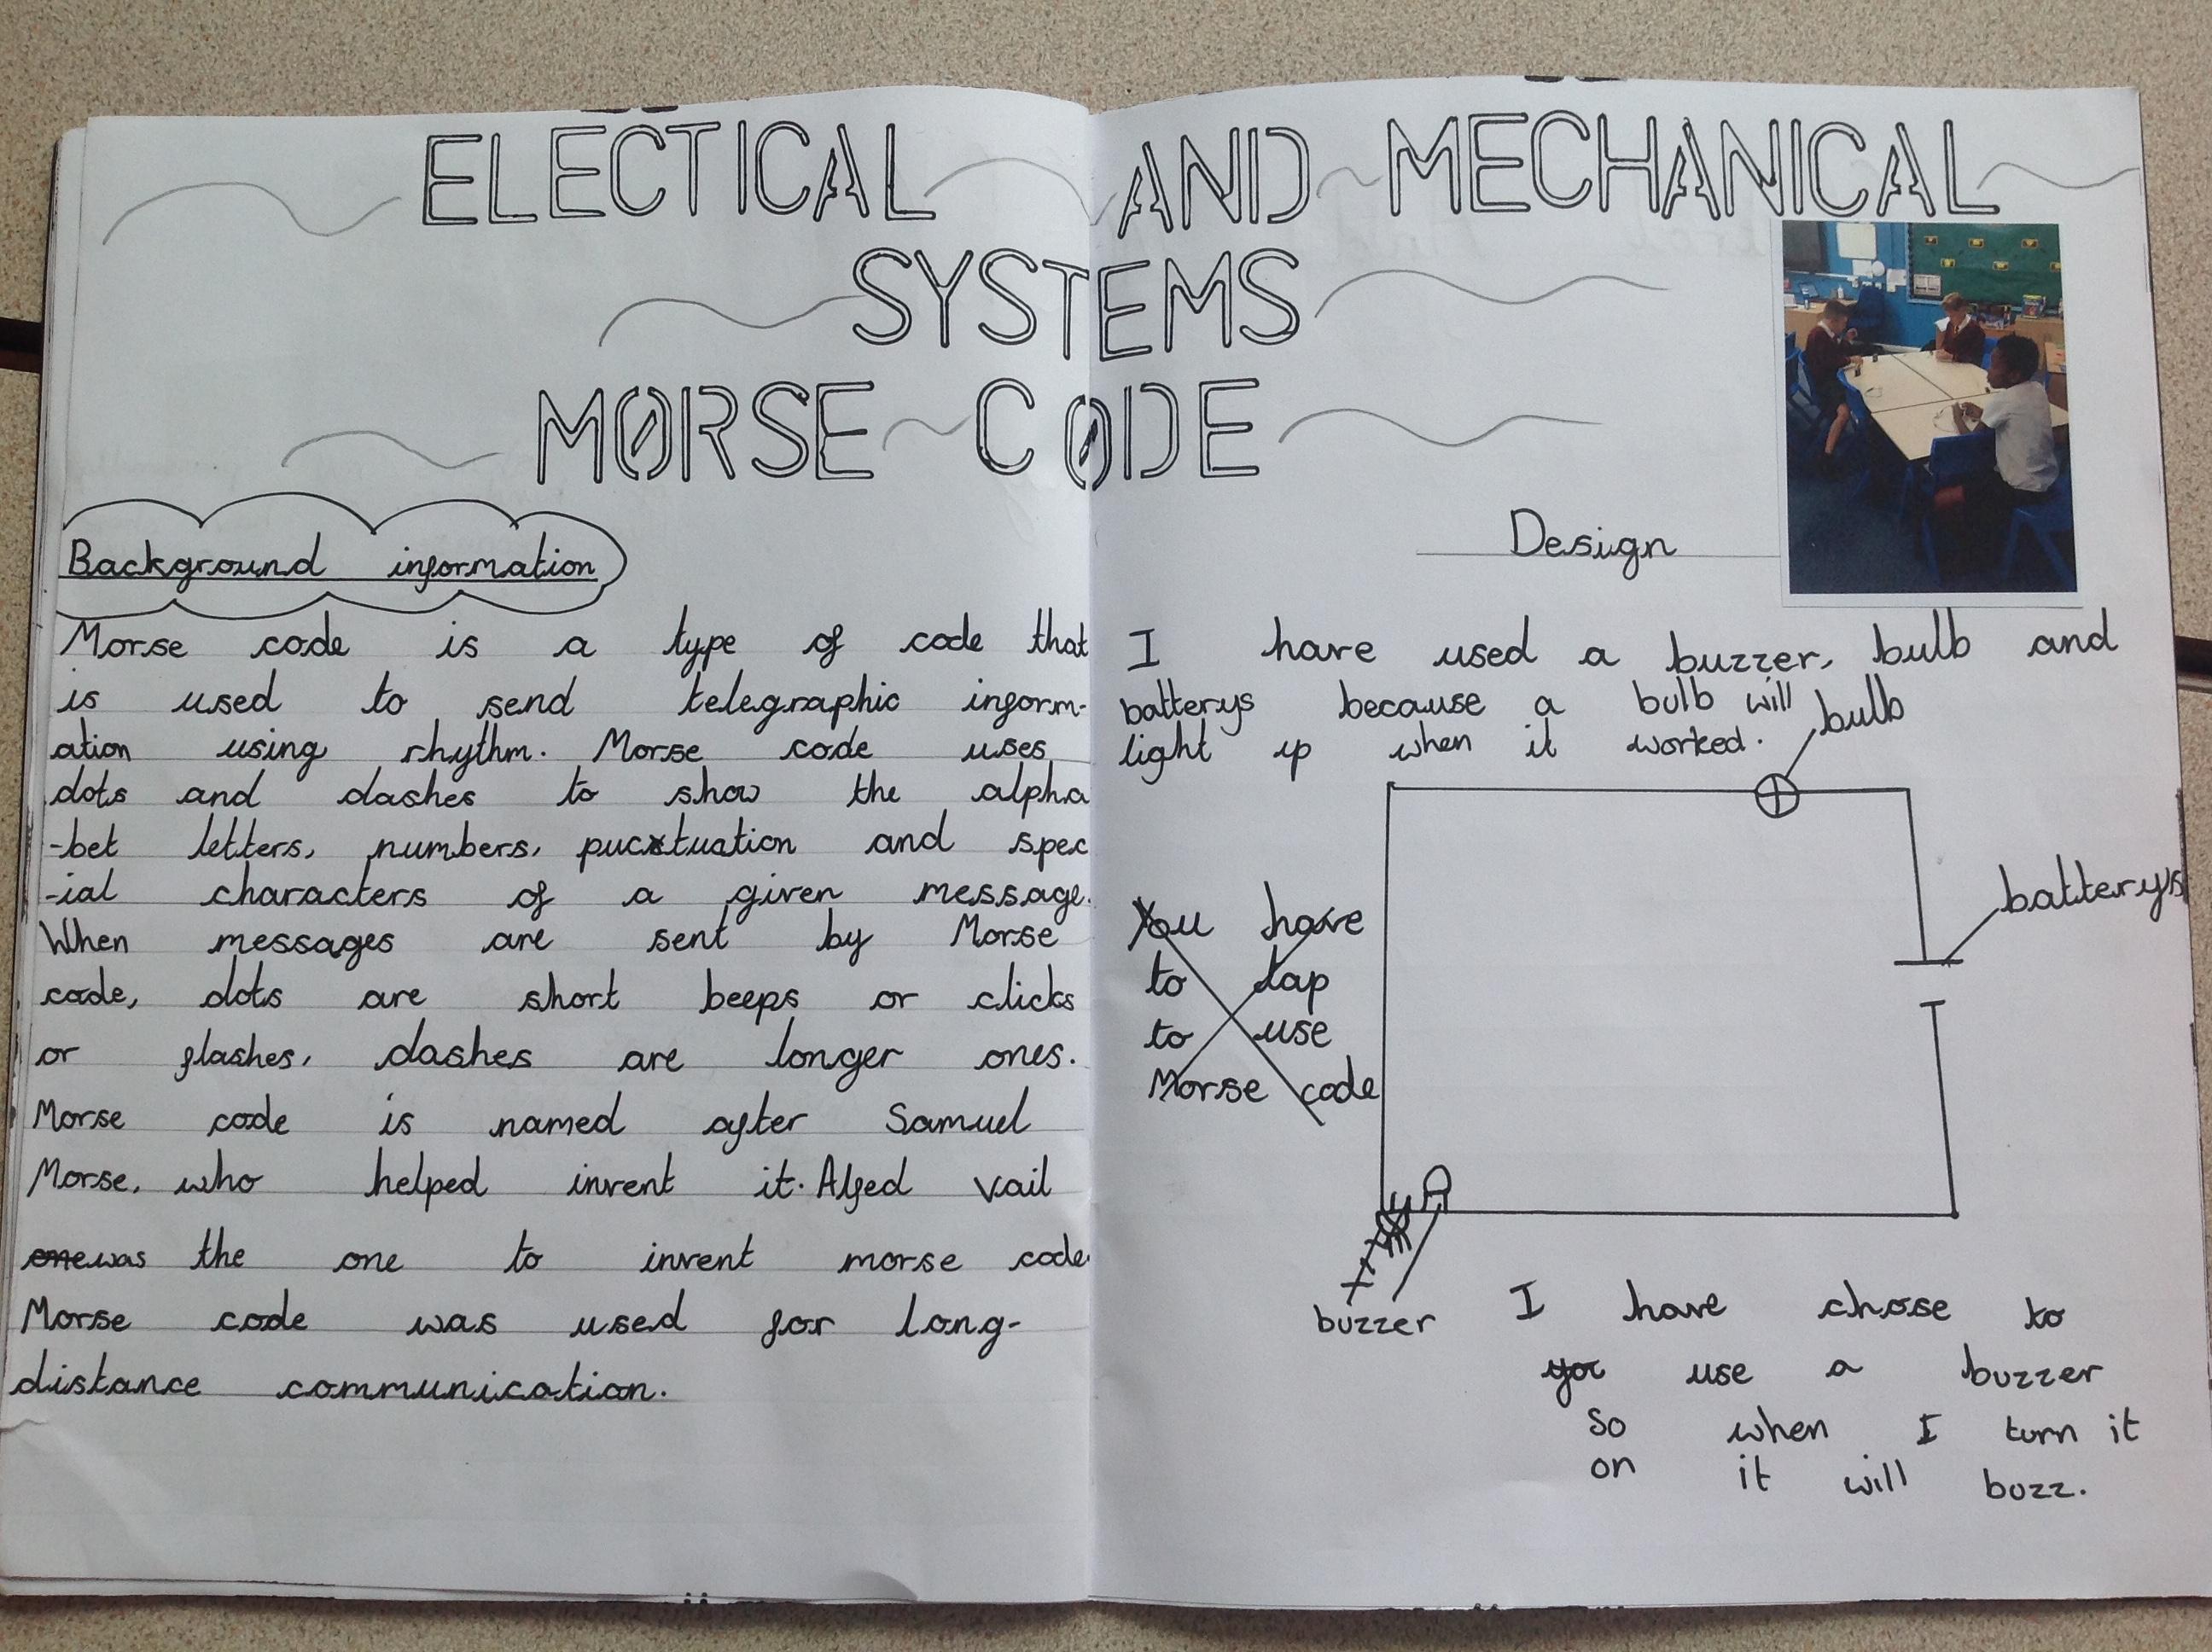 ELECTICAL AND MECHANICAL
SYSTEMS
MORSE CODE
Background information
Morse code is a type of code that
is used to send telegraphic inform-
ation using rhythm. Morse code uses
dots and dashes to show the alpha
-bet letters, numbers, puctuation and spec
-ial characters of a given message.
When messages are sent by Morse
code, dots are short beeps or clicks
or flashes, dashes are longer ones.
Morse code is named after Samuel
Morse, who helped invent it. Alfed Vail
one was the one to invent morse code.
Morse code was used for long-
distance communication.
Design
I have used a buzzer, bulb and
batterys because a bulb will
light up when it worked.
bulb
batterys
You have
to tap
to use
Morse code
buzzer
I have chose to
you use a buzzer
so when I turn it
on it will buzz.